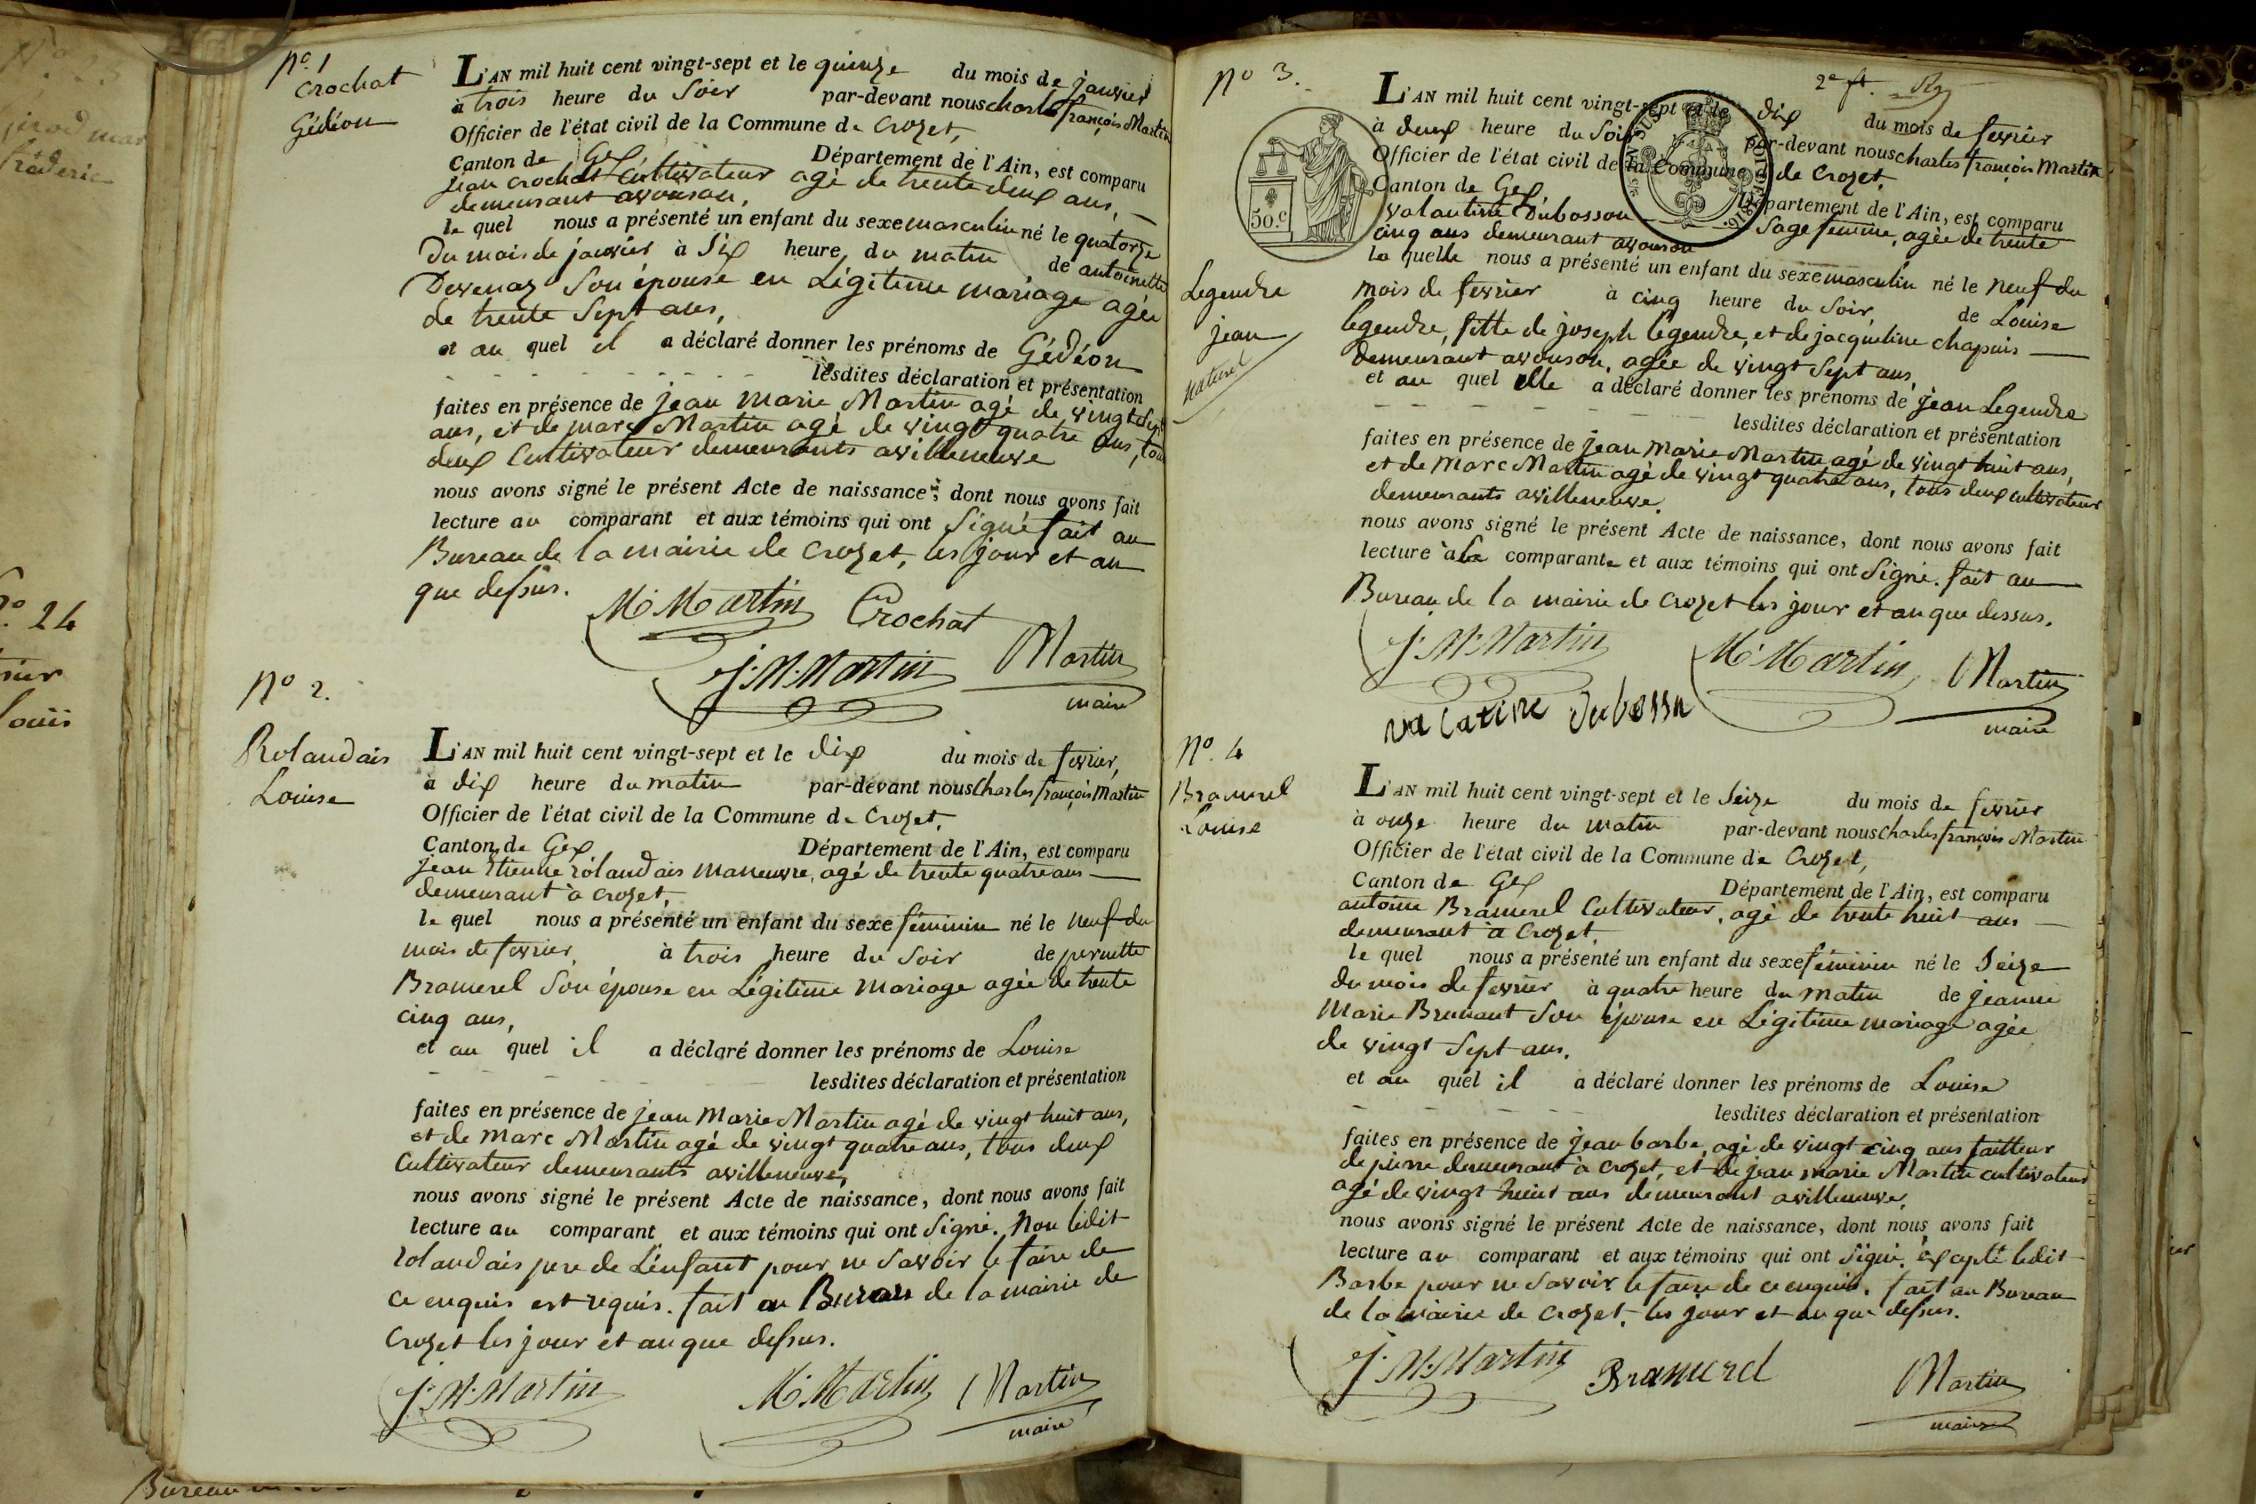 Nº. 1
Crochat
Gédéon
L'AN mil huit cent vingt-sept et le quinze du mois de janvier
à trois heure du soir par-devant nous charles françois Martin
Officier de l'état civil de la Commune de Crozet,
Canton de Gex Département de l'Ain, est comparu
jean crochat Cultivateur agé de trente deux ans,
demeurant avouson,
le quel nous a présenté un enfant du sexe masculin né le quatorze
du mois de janvier à Six heure du matin, de antoinette
Devenaz Son épouse en Légitime mariage agée
de trente Sept ans,
et au quel il a déclaré donner les prénoms de Gédéon
lesdites déclaration et présentation
faites en présence de jean Marie Martin agé de vingt Sept
ans, et de marc Martin agé de vingt quatre ans, tous
deux Cultivateur demeurants avilleneuve
nous avons signé le présent Acte de naissance; dont nous avons fait
lecture au comparant et aux témoins qui ont Signé fait au
Bureau de la mairie de Crozet, les jour et an
que dessus.
M. Martin Crochat
J. M. Martin Martin
maire
Nº 2.
Rolandais
Louise
L'AN mil huit cent vingt-sept et le dix du mois de fevrier,
à dix heure du matin par-devant nous Charles françois Martin
Officier de l'état civil de la Commune de Crozet,
Canton de Gex Département de l'Ain, est comparu
jean Etienne rolandais maneuvre, agé de trente quatre ans
demeurant à crozet,
le quel nous a présenté un enfant du sexe féminin né le neuf du
mois de fevrier, à trois heure du Soir de pernette
Bramerel Son épouse en Légitime mariage agée de trente
cinq ans,
et au quel il a déclaré donner les prénoms de Louise
lesdites déclaration et présentation
faites en présence de jean Marie Martin agé de vingt huit ans,
et de Marc Martin agé de vingt quatre ans, tous deux
Cultivateur demeurants avilleneuve,
nous avons signé le présent Acte de naissance, dont nous avons fait
lecture au comparant et aux témoins qui ont Signé. Non ledit
rolandais pere de L'enfant pour ne Savoir le faire de
ce enquis est requis. fait au Bureau de la mairie de
Crozet les jour et an que dessus.
J. M. Martin M. Martin Martin
maire
2e ft.
Nº 3.
Legendre
jean
naturel
50.c
L'AN mil huit cent vingt-sept et le dix du mois de fevrier
à deux heure du Soir par-devant nous charles françois Martin
Officier de l'état civil de la Commune de Crozet,
Canton de Gex Département de l'Ain, est comparu
valantine Dubosson Sage femme, agée de trente
cinq ans demeurant avouson
la quelle nous a présenté un enfant du sexe masculin né le neuf du
mois de fevrier à cinq heure du Soir, de Louise
legendre, fille de joseph legendre, et de jacqueline chapuis
demeurant avouson, agée de vingt Sept ans,
et au quel elle a déclaré donner les prénoms de jean Legendre
lesdites déclaration et présentation
faites en présence de jean Marie Martin agé de vingt huit ans,
et de Marc Martin agé de vingt quatre ans, tous deux cultivateur
demeurants avilleneuve.
nous avons signé le présent Acte de naissance, dont nous avons fait
lecture à la comparante et aux témoins qui ont Signé. fait au
Bureau de la mairie de crozet les jour et an que dessus.
J. M. Martin M. Martin Martin
maire
valatine dubossn
Nº. 4
Bramerel
Louise
L'AN mil huit cent vingt-sept et le Seize du mois de fevrier
à onze heure du matin par-devant nous charles françois Martin
Officier de l'état civil de la Commune de Crozet,
Canton de Gex Département de l'Ain, est comparu
antoine Bramerel Cultivateur, agé de trente huit ans
demeurant à Crozet,
le quel nous a présenté un enfant du sexe féminin né le Seize
du mois de fevrier à quatre heure du matin de jeanne
Marie Brunant Son épouse en Légitime mariage agée
de vingt Sept ans.
et au quel il a déclaré donner les prénoms de Louise
lesdites déclaration et présentation
faites en présence de jean barbe, agé de vingt cinq ans tailleur
de pierre demeurant à crozet, et de jean marie Martin cultivateur
agé de vingt huit ans demeurant avilleneuve,
nous avons signé le présent Acte de naissance, dont nous avons fait
lecture au comparant et aux témoins qui ont Signé, éxcepté ledit
Barbe pour ne Savoir le faire de ce enquis. fait au Bureau
de la mairie de Crozet, les jour et an que dessus.
J. M. Martin Bramerel Martin
maire
Nº. 24
Louis
frederic
Bureau